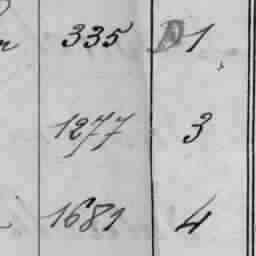 335 D 1
1277 3
1681 4